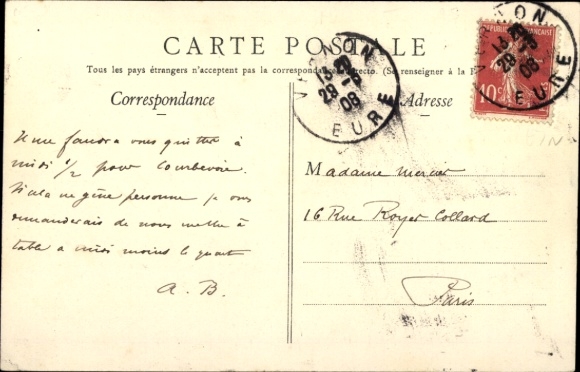 CARTE POSTALE
Tous les pays étrangers n'acceptent pas la correspondance au recto. (Se renseigner à la P
Correspondance
Adresse
VERNON
13 20
28 -5
08
EURE
RÉPUBLIQUE FRANÇAISE
10c
VERNON
28
08
EURE
Il me faudra vous quitter à
midi 1/2 pour Courbevoie.
Si cela ne gêne personne je vous
demanderais de nous mettre à
table a midi moins le quart
A. B.
Madame Mercier
16 Rue Royer Collard
Paris